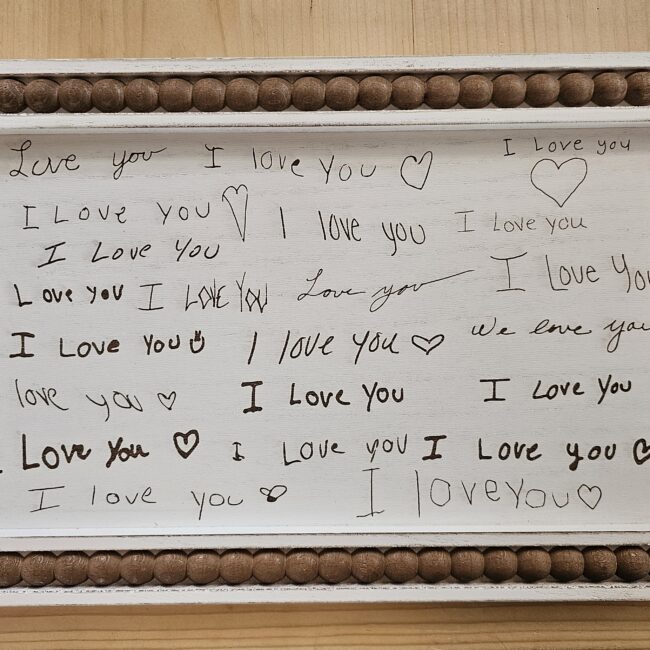 Love you I love You ♡ I Love you ♡
I Love You ♡ I love you I Love you
I Love You
Love you I LOVE YOU Love you I Love You
I Love You I love you ♡ We love you
love you ♡ I Love You I Love You
I Love You ♡ I Love you I Love you ♡
I love you ♡ I love You ♡